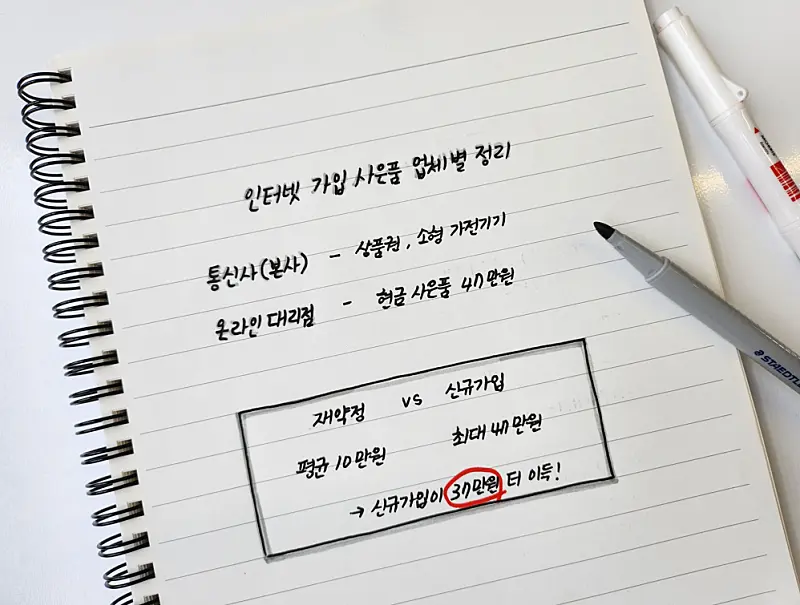 인터넷 가입 사은품 업체별 정리
통신사(본사) - 상품권, 소형 가전기기
온라인 대리점 - 현금 사은품 47만원
재약정 vs 신규가입
평균 10만원 최대 47만원
→ 신규가입이 37만원 더 이득!
STAEDTLER